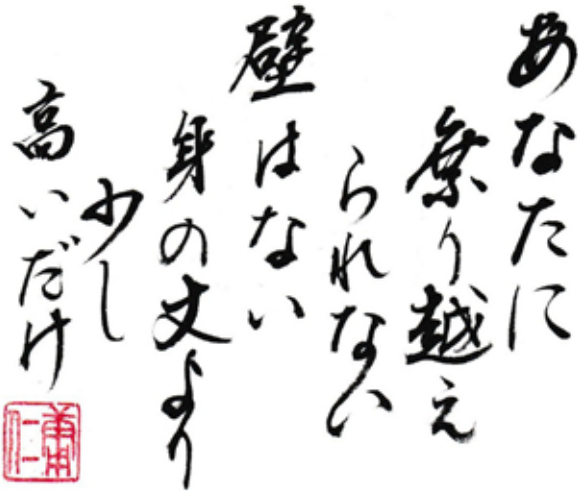 あなたに
乗り越え
られない
壁はない
身の丈より
少し
高いだけ